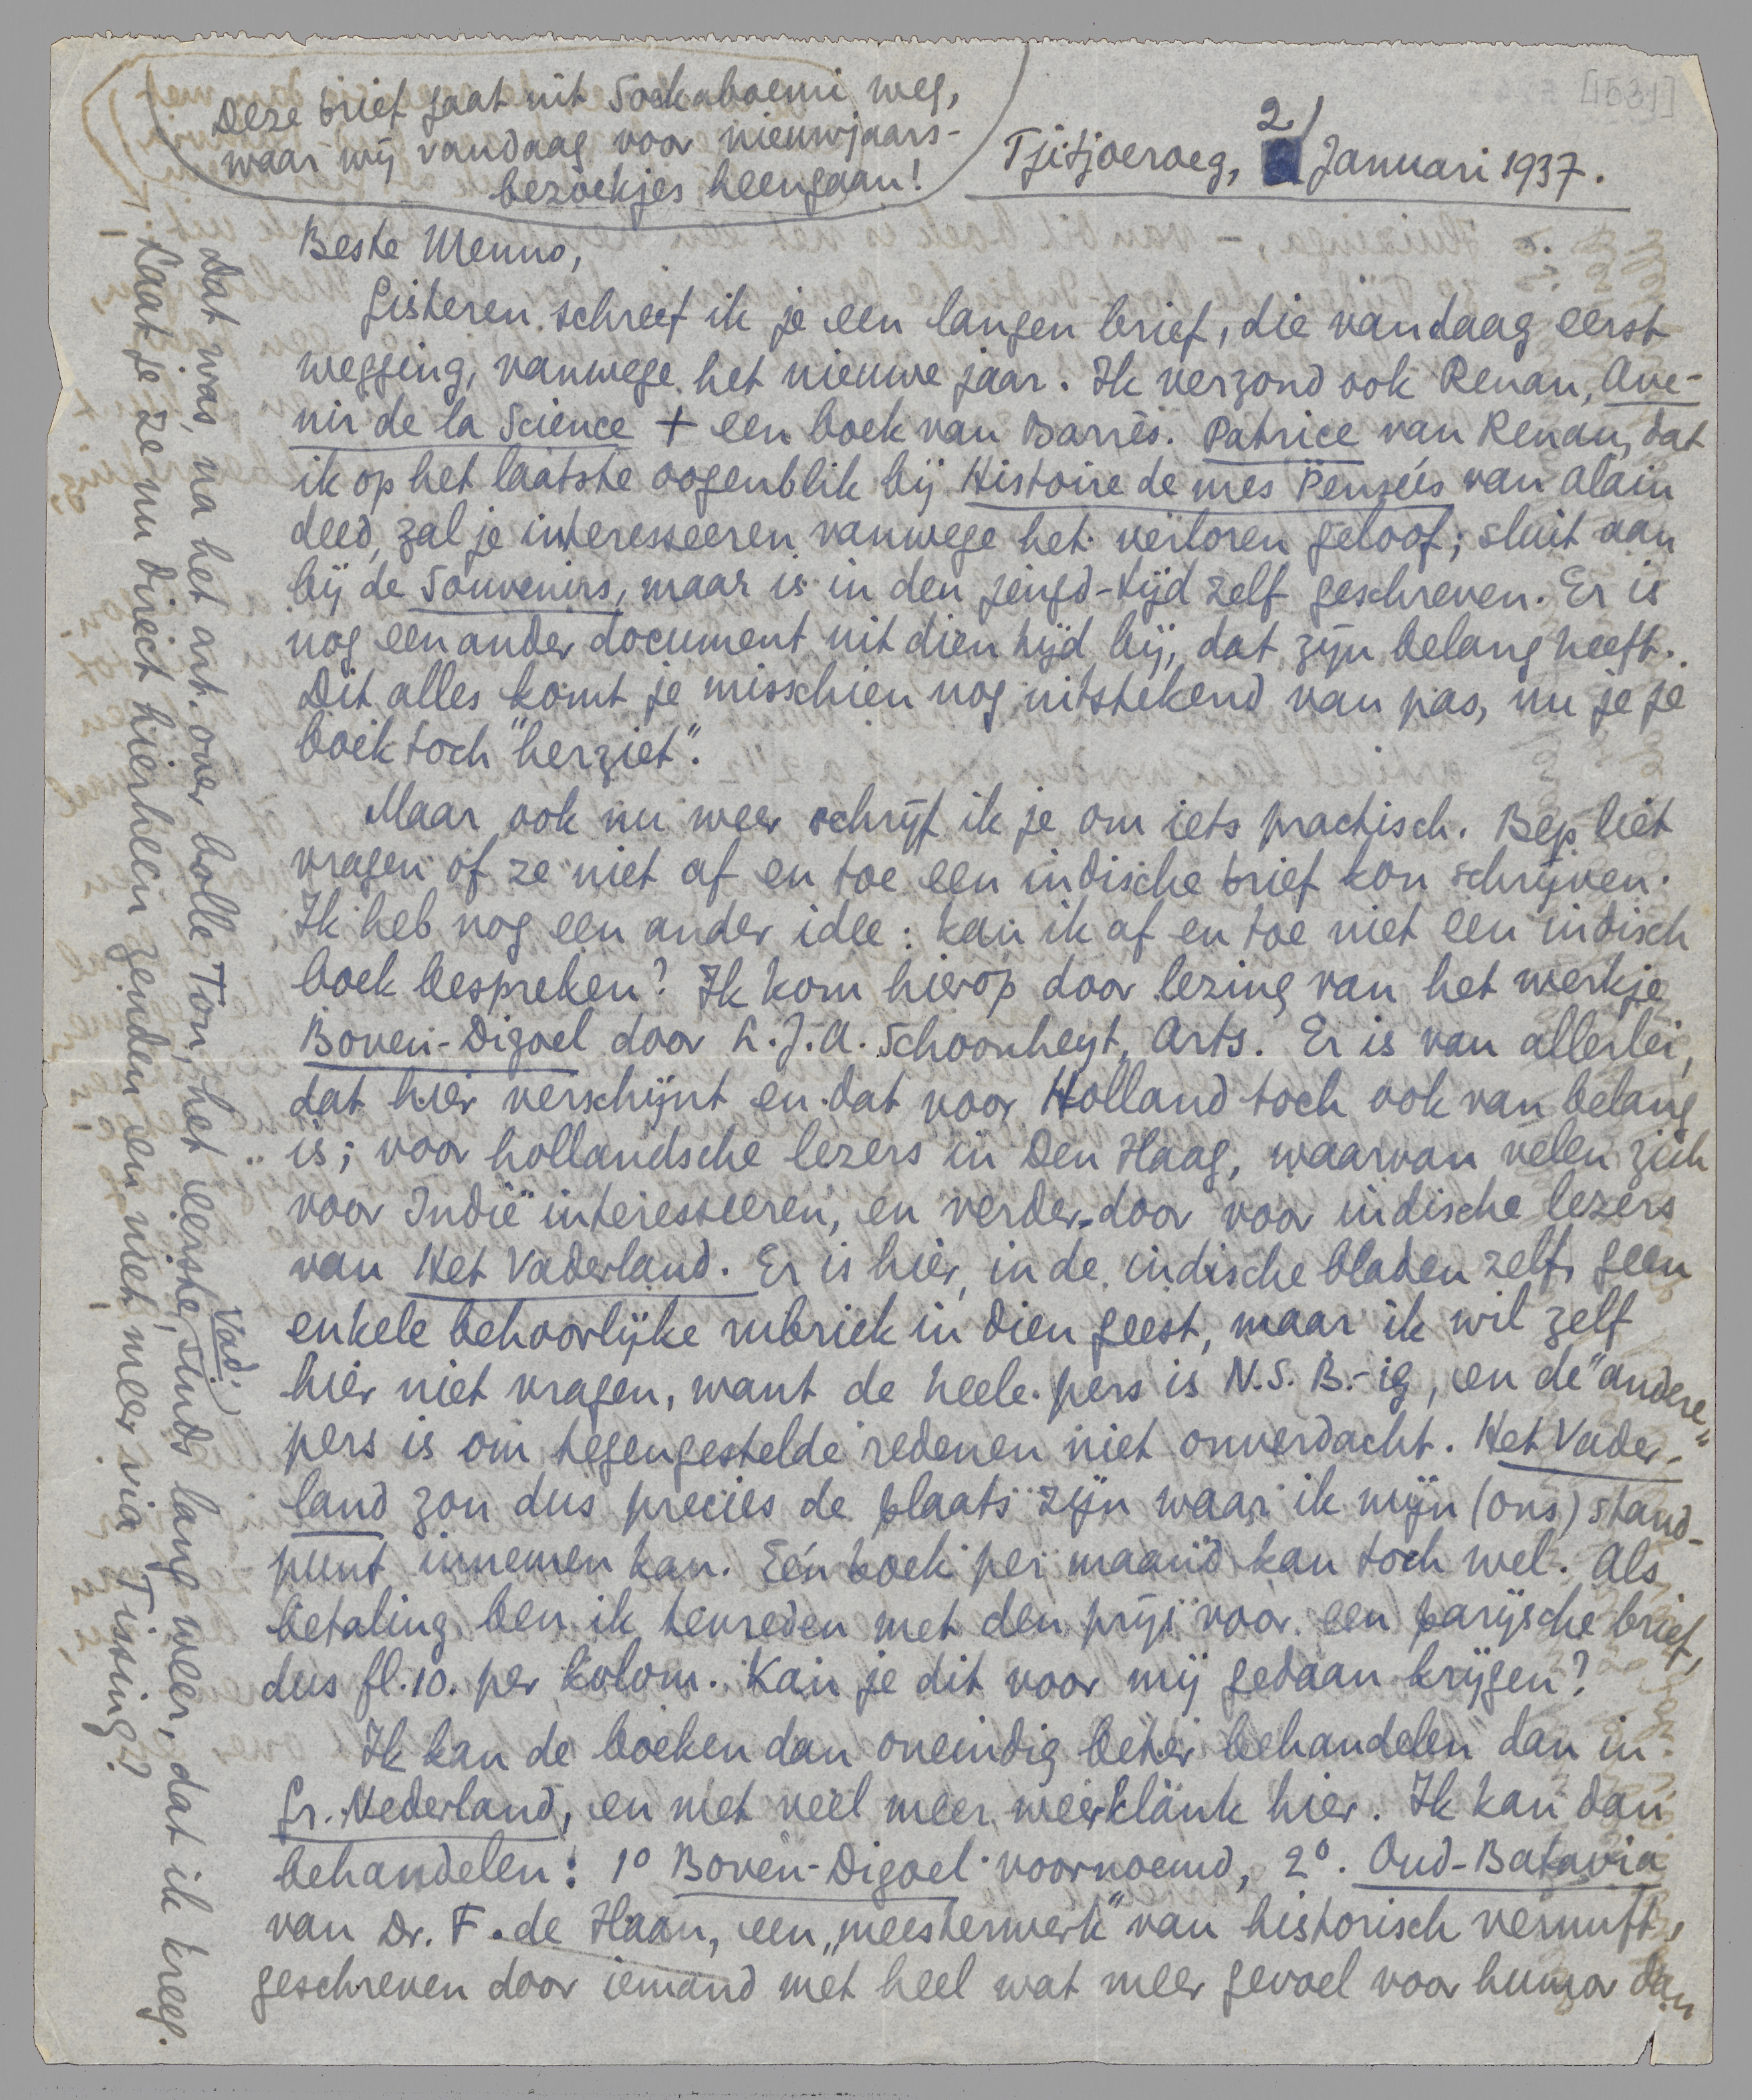 [1531]
Deze brief gaat uit Soekaboemi weg,
waar wij vandaag voor nieuwjaars-
bezoekjes heengaan!
Tjitjoeroeg, 2 Januari 1937.
Beste Menno,
Gisteren schreef ik je een langen brief, die vandaag eerst
wegging, vanwege het nieuwe jaar. Ik verzond ook Renan, Ave-
nir de la Science + een boek van Barrès. Patrice van Renan, dat
ik op het laatste oogenblik bij Histoire de mes Pensées van Alain
deed, zal je interesseeren vanwege het verloren geloof; sluit aan
bij de Souvenirs, maar is in den jeugd-tijd zelf geschreven. Er is
nog een ander document uit dien tijd bij, dat zijn belang heeft.
Dit alles komt je misschien nog uitstekend van pas, nu je je
boek toch "herziet".
Maar ook nu weer schrijf ik je om iets practisch. Bep liet
vragen of ze niet af en toe een indische brief kon schrijven.
Ik heb nog een ander idee: kan ik af en toe niet een indisch
boek bespreken? Ik kom hierop door lezing van het werkje
Boven-Digoel door L.J.A. Schoonheyt, Arts. Er is van allerlei,
dat hier verschijnt en dat voor Holland toch ook van belang
is; voor hollandsche lezers in Den Haag, waarvan velen zich
voor Indië interesseeren, en verder-door voor indische lezers
van Het Vaderland. Er is hier, in de indische bladen zelf, geen
enkele behoorlijke rubriek in dien geest, maar ik wil zelf
hier niet vragen, want de heele pers is N.S.B.-ig, en de "andere"
pers is om tegengestelde redenen niet onverdacht. Het Vader-
land zou dus precies de plaats zijn waar ik mijn (ons) stand-
punt innemen kan. Eén boek per maand kan toch wel. Als
betaling ben ik tevreden met den prijs voor een parijsche brief,
dus fl. 10. per kolom. Kan je dit voor mij gedaan krijgen?
Ik kan de boeken dan oneindig beter behandelen dan in
Gr. Nederland, en met veel meer weerklank hier. Ik kan dan
behandelen: 1º Boven-Digoel voornoemd, 2º. Oud-Batavia
van Dr. F. de Haan, een "meesterwerk" van historisch vernuft,
geschreven door iemand met heel wat meer gevoel voor humor dan
Laat je ze nu direct hierheen zenden en niet meer via Tissing?
Dat was, na het art. over bolle Ton, het eerste Vad., sinds lang weer, dat ik kreeg.